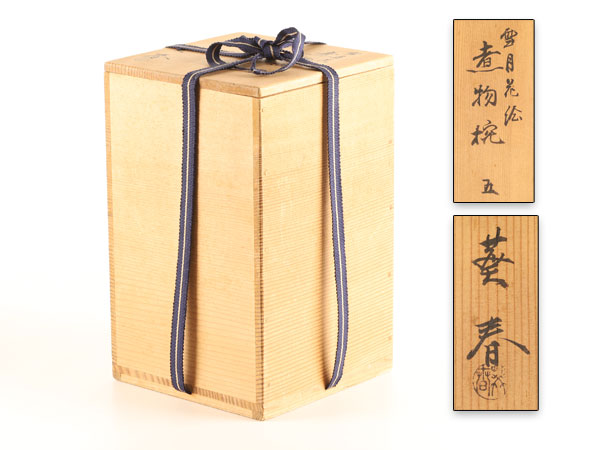 雪月花絵
煮物椀 五
葵春